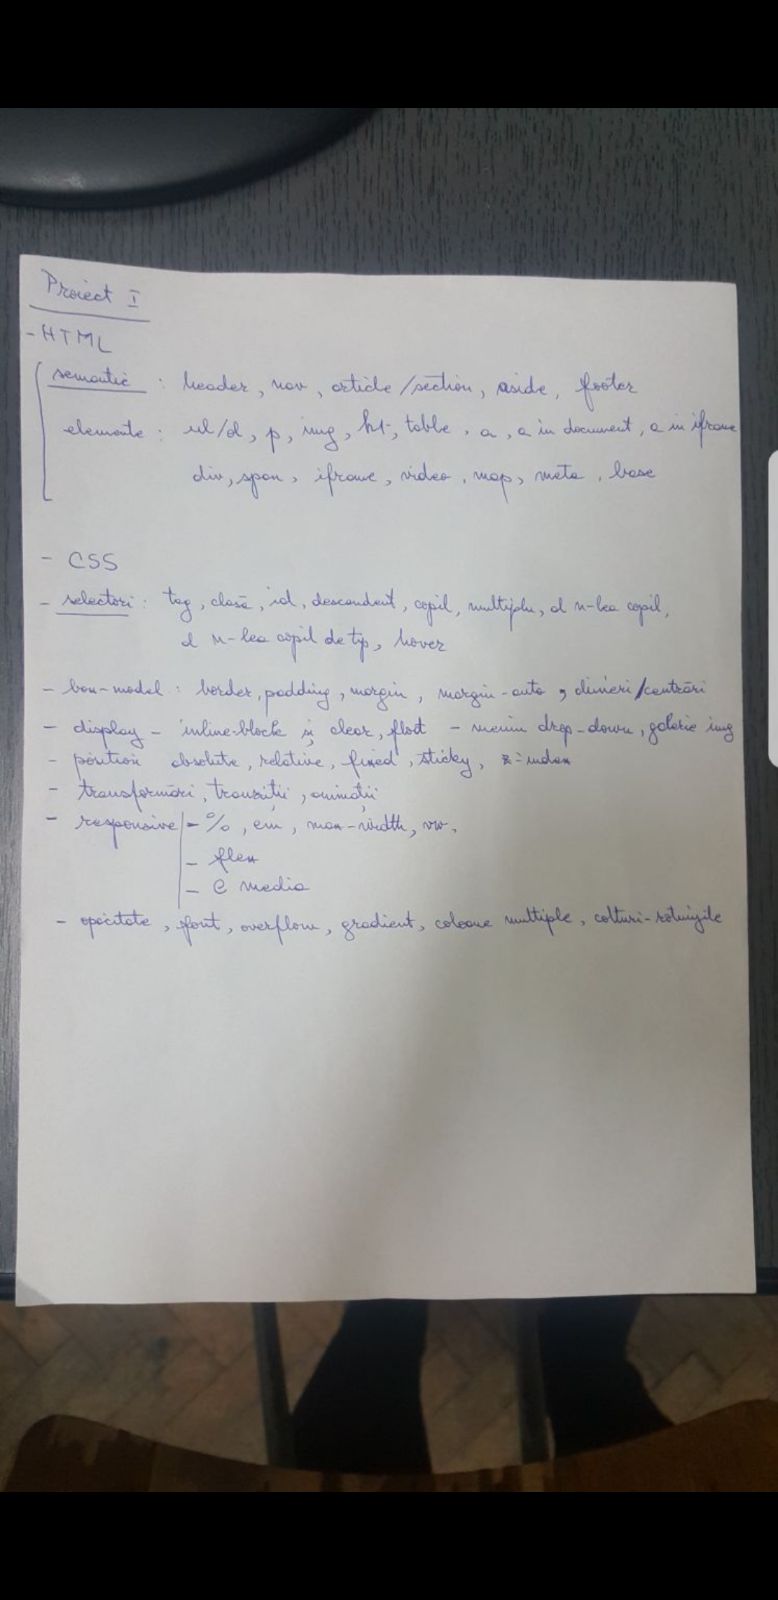 Proiect I
- HTML
semantic : header, nav, article/section, aside, footer
elemente : ul/ol, p, img, h1-, table, a, a in document, a in iframe
div, span, iframe, video, map, meta, base
- CSS
- selectori : tag, clasă, id, descendent, copil, multiplu, al n-lea copil,
al n-lea copil de tip, hover
- box-model : border, padding, margin, margin-auto, /centrări
- display - inline-block și clear, float - meniu drop-down, galerie img
- position absolute, relative, fixed, sticky, z-index
- transformări, tranziții, animații
- responsive - %, em, max-width, vw,
- flex
- @ media
- opacitate, font, overflow, gradient, coloane multiple, colturi-rotunjite